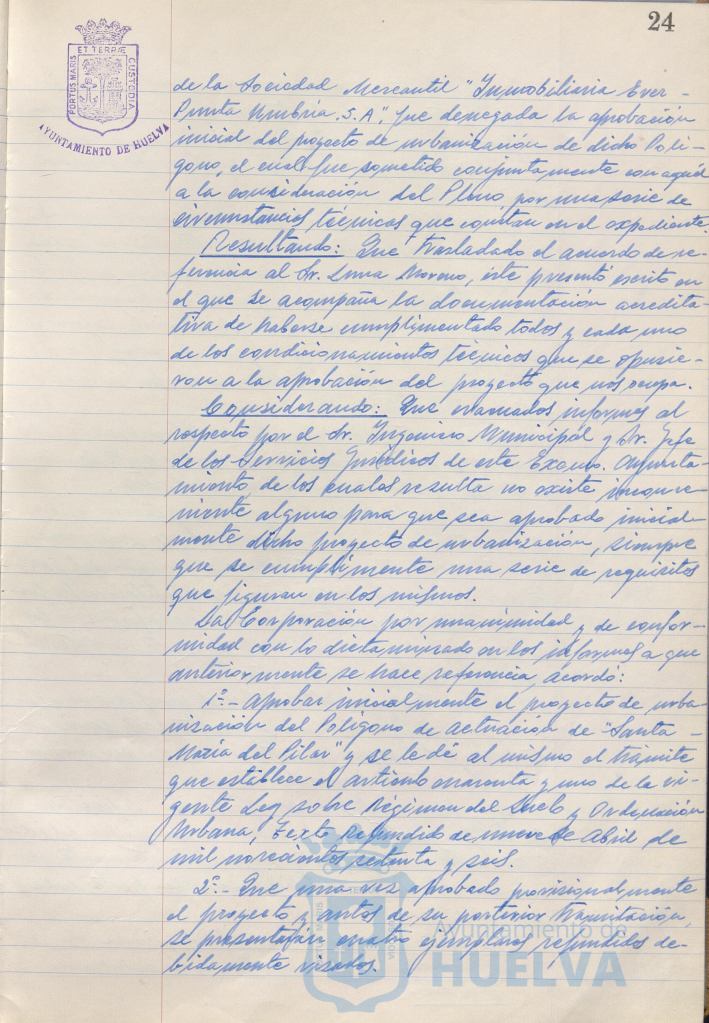 24
PORTUS MARIS ET TERRÆ CUSTODIA
AYUNTAMIENTO DE HUELVA
de la Sociedad Mercantil "Inmobiliaria Ever-
Punta Umbría, S.A.", fue denegada la aprobación
inicial del proyecto de urbanización de dicho Polí-
gono, el cual fue sometido conjuntamente con aquél
a la consideración del Pleno, por una serie de
circunstancias técnicas que constan en el expediente.
Resultando: Que trasladado el acuerdo de re-
ferencia al Sr. Luna Moreno, éste presentó escrito en
el que se acompaña la documentación acredita-
tiva de haberse cumplimentado todos y cada uno
de los condicionamientos técnicos que se opusie-
ron a la aprobación del proyecto que nos ocupa.
Considerando: Que evacuados informes al
respecto por el Sr. Ingeniero Municipal y Sr. Jefe
de los Servicios Jurídicos de este Excmo. Ayunta-
miento, de los cuales resulta no existe inconve-
niente alguno para que sea aprobado inicial-
mente dicho proyecto de urbanización, siempre
que se cumplimente una serie de requisitos
que figuran en los mismos.
La Corporación por unanimidad y de confor-
midad con lo dictaminado en los informes a que
anteriormente se hace referencia, acordó:
1º.- Aprobar inicialmente el proyecto de urba-
nización del Polígono de actuación de "Santa
María del Pilar" y se le dé al mismo el trámite
que establece el artículo cuarenta y uno de la vi-
gente Ley sobre Régimen del Suelo y Ordenación
Urbana, Texto Refundido de nueve de Abril de
mil novecientos setenta y seis.
2º.- Que una vez aprobado provisionalmente
el proyecto y antes de su posterior tramitación,
se presentarán cuatro ejemplares refundidos de-
bidamente visados.
Ayuntamiento de
HUELVA